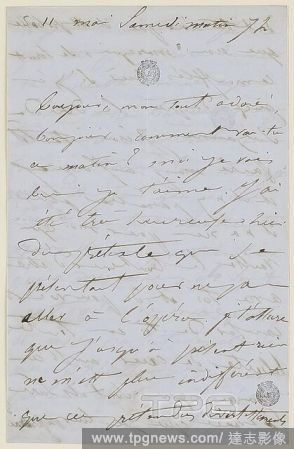 11 mai Samedi matin 72
Bonjour, mon tout adoré
bonjour, comment vas-tu
ce matin ? moi je vais
bien je t'aime. J'ai
été très heureuse hier
du prétexte qui se
présentait pour ne pas
aller à l'opéra. Je t'assure
que jusqu'à présent rien
ne m'est plus indifférent
que ces prétendus divertissements
TPG
www.tpgnews.com / 達志影像